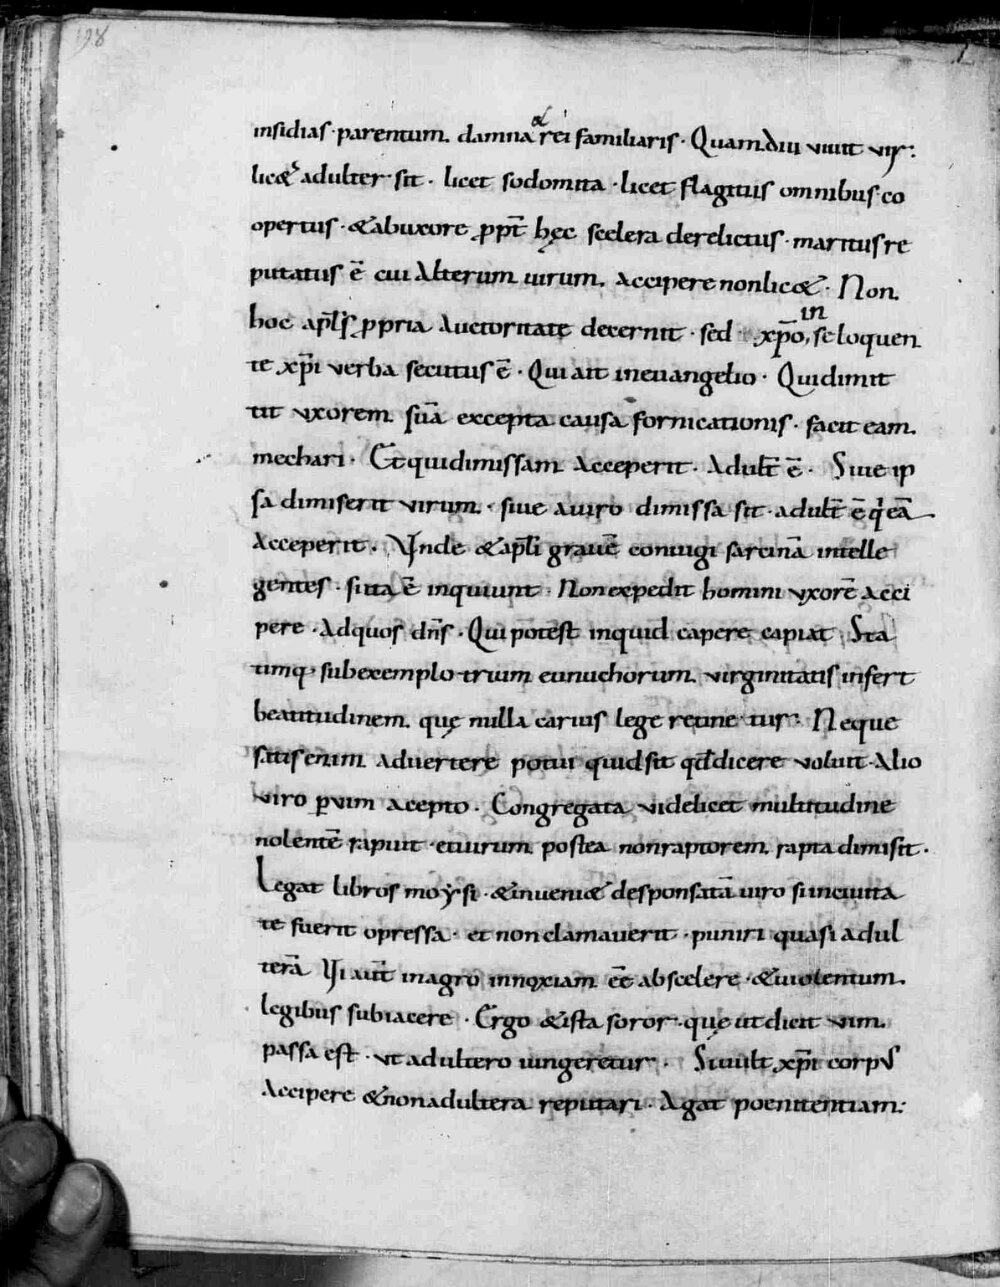 198
insidias · parentum. damna & rei familiaris · Quamdiu vivit vir:
lic& adulter sit · licet sodomita · licet flagitiis omnibus co
opertus · & ab uxore ꝓpt̄ hęc scelera derelictus · maritus re
putatus ē cui alterum virum. accipere non lic& · Non
hoc apl̄s ꝓpria auctoritate decernit · sed xp̄o, in se loquen
te xp̄i verba secutus ē · Qui ait in euangelio · Qui dimit
tit vxorem suā excepta causa fornicationis · facit eam
mechari · Et qui dimissam acceperit · adult̄ ē · Siue ip
sa dimiserit virum · siue a viro dimissa sit · adult̄ ē q̇ eā
acceperit · Vnde & apl̄i grauē coniugi sarcinā intelle
gentes · si ita ē inquiunt · Non expedit homini vxorē acci
pere · Ad quos dn̄s · Qui potest inquid capere capiat Sta
timq; sub exemplo trium eunuchorum virginitatis infert
beatitudinem. quę nulla carius lege retinetur: Neque
satis enim aduertere potui quid sit qd̄ dicere voluit · Alio
viro ꝑ vim acepto · Congregata videlicet multitudine
nolentē rapuit · et virum postea non raptorem rapta dimisit ·
Legat libros moysi · & inueni& desponsatā viro si in ciuita
te fuerit opressa · et non clamauerit · puniri quasi adul
terā Si aut̄ in agro innoxiam eē ab scelere · & uiolentum
legibus subiacere · Ergo & ista soror · quę ut dicit vim
passa est · vt adultero iungeretur · Si uult xp̄i corpus
Accipere & non adultera reputari · Agat poenitentiam: